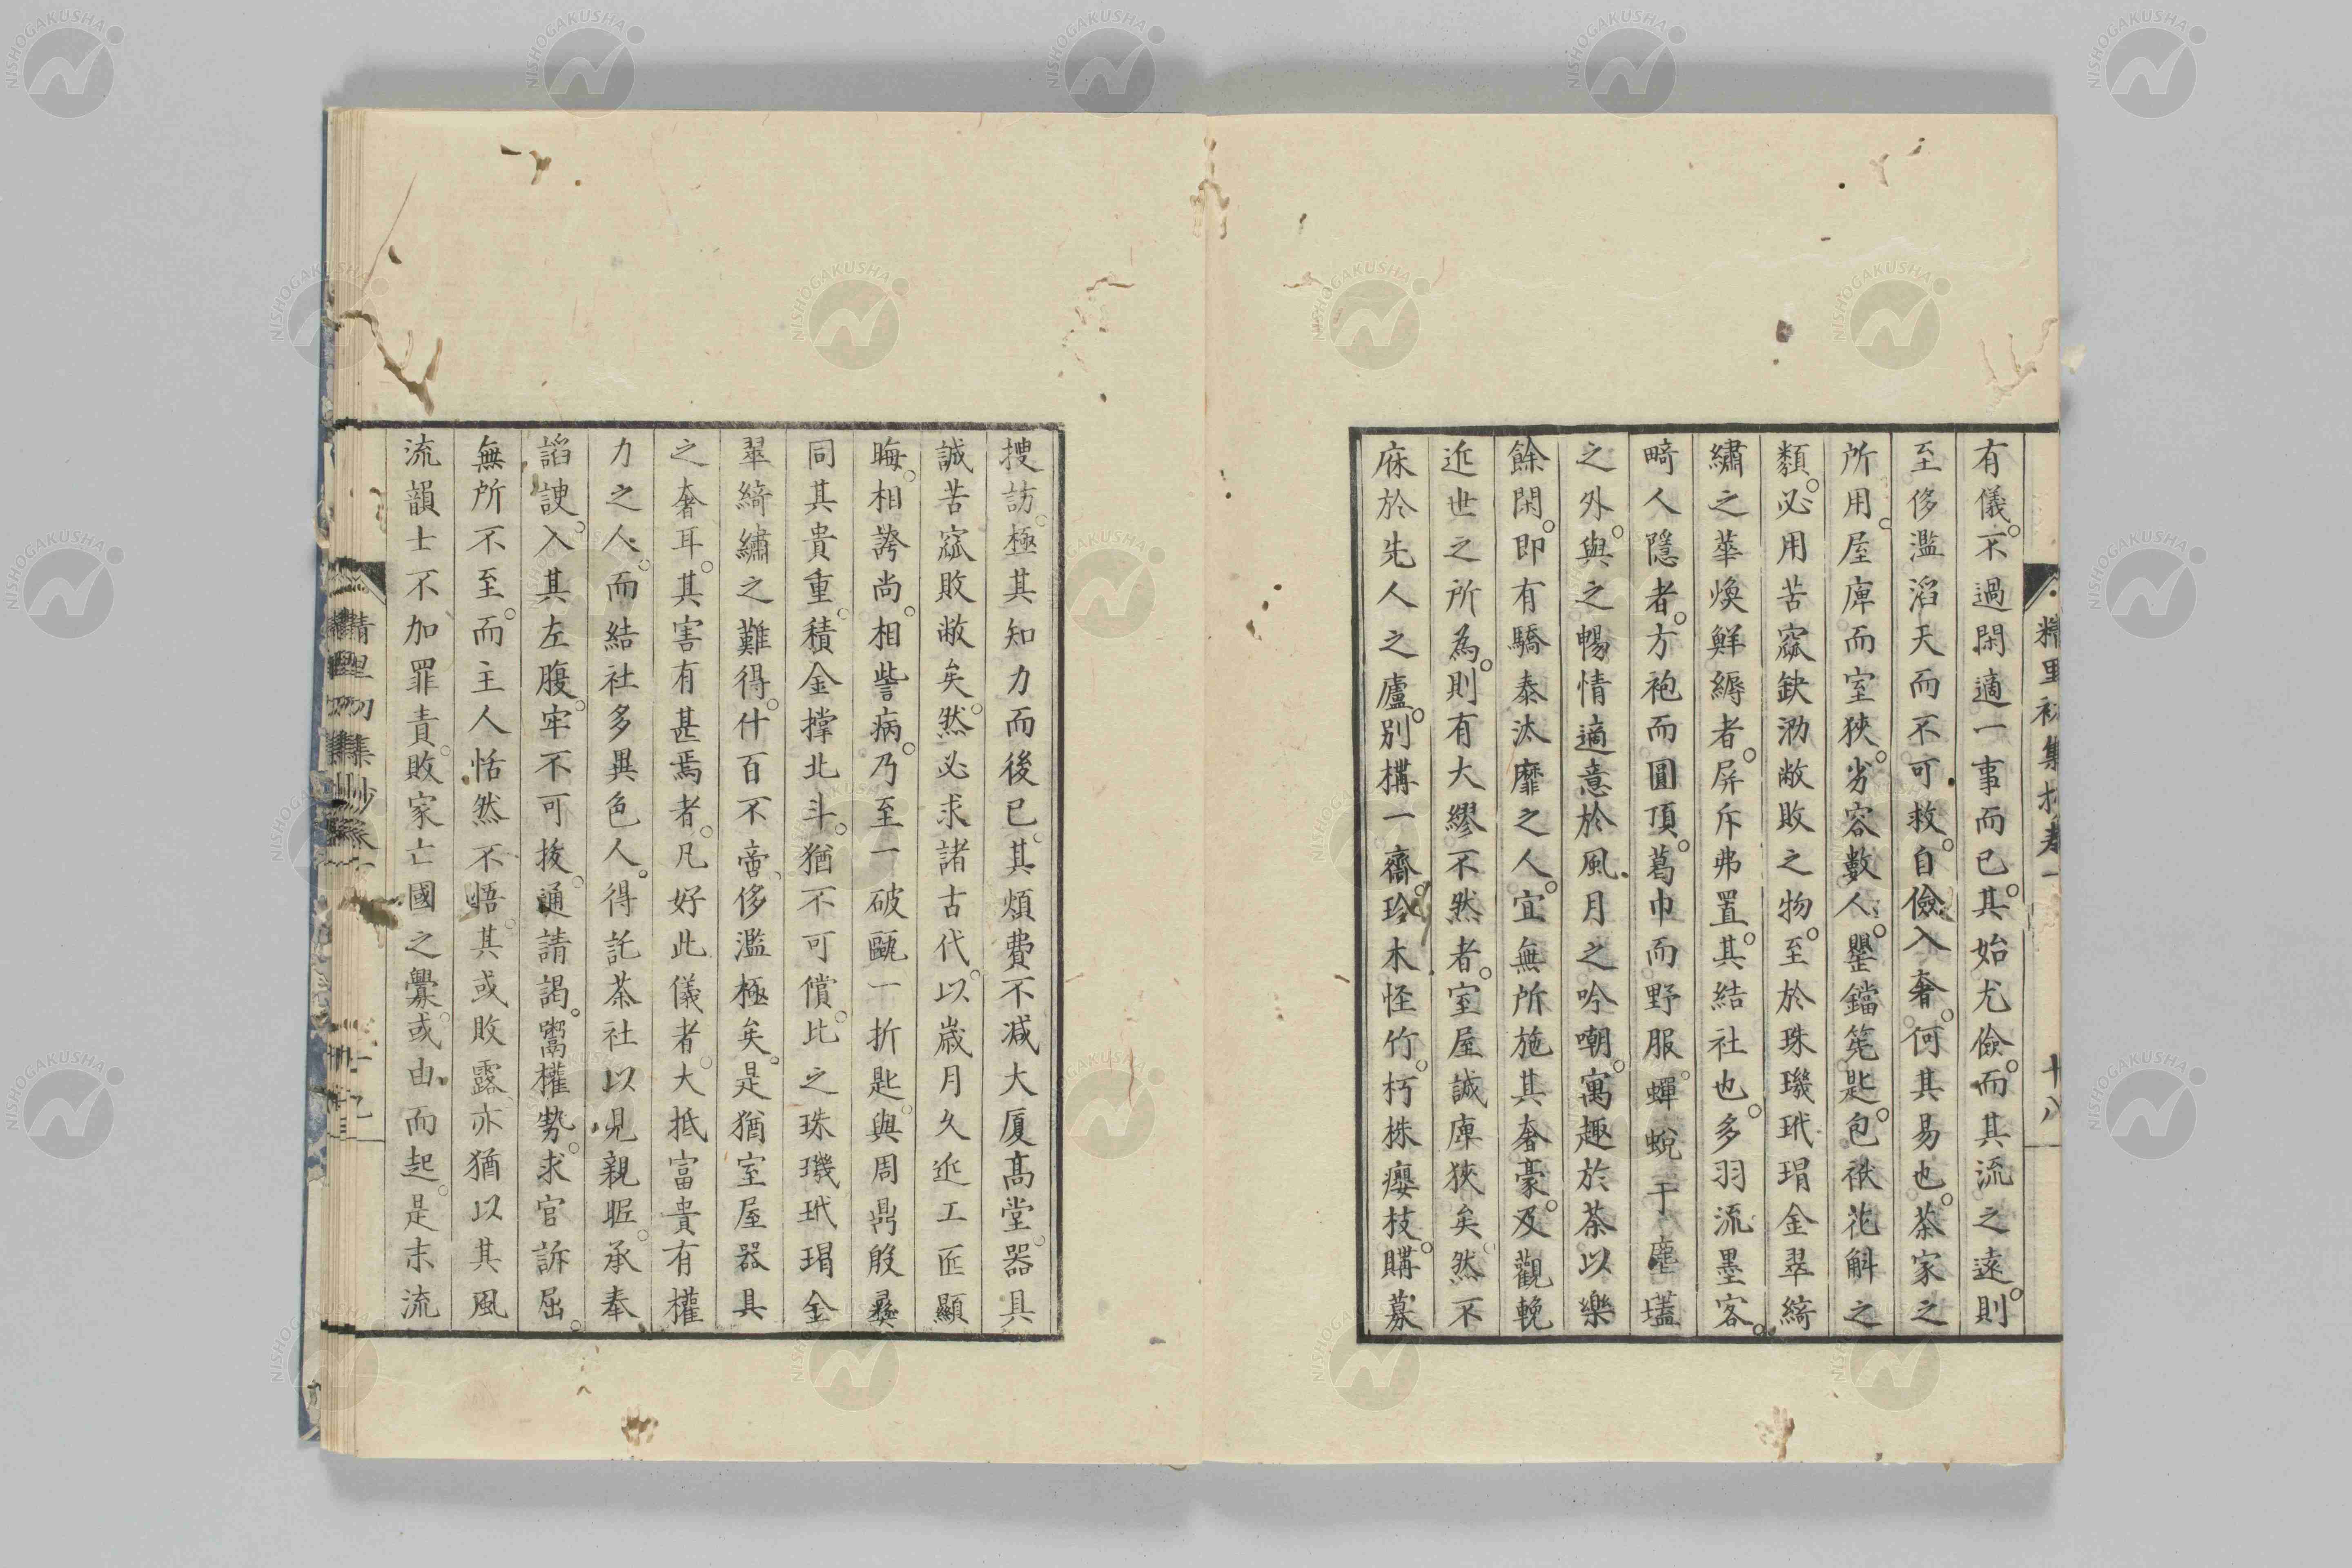 精里初集抄卷一
十八
有儀。不過閑適一事而已。其始尤儉。而其流之遠。則
至侈濫滔天而不可救。自儉入奢。何其易也。茶家之
所用。屋庳而室狹。劣容數人。罌鐺筅匙。包袱花斛之
類。必用苦窳缺泐敝敗之物。至於珠璣玳瑁金翠綺
繡之華煥鮮縟者。屏斥弗置。其結社也。多羽流墨客。
畸人隱者。方袍而圓頂。葛巾而野服。蟬蛻于塵壒
之外。與之暢情適意於風月之吟嘲。寓趣於茶以樂
餘閑。即有驕泰汰靡之人。宜無所施其奢豪。及觀輓
近世之所為。則有大繆不然者。室屋誠庳狹矣。然不
庥於先人之廬。別構一齋。珍木怪竹。朽株癭枝。購募
搜訪。極其知力而後已。其煩費不減大厦高堂。器具
誠苦窳敗敝矣。然必求諸古代。以歲月久近工匠顯
晦。相誇尚。相訾病。乃至一破甌一折匙。與周鼎殷彝
同其貴重。積金撑北斗。猶不可償。比之珠璣玳瑁金
翠綺繡之難得。什百不啻。侈濫極矣。是猶室屋器具
之奢耳。其害有甚焉者。凡好此儀者。大抵富貴有權
力之人。而結社多異色人。得託茶社以見親昵。承奉
謟諛。入其左腹。牢不可拔。通請謁。鬻權勢。求官訴屈。
無所不至。而主人恬然不悟。其或敗露亦猶以其風
流韻士不加罪責。敗家亡國之釁。或由而起。是末流
NISHOGAKUSHA